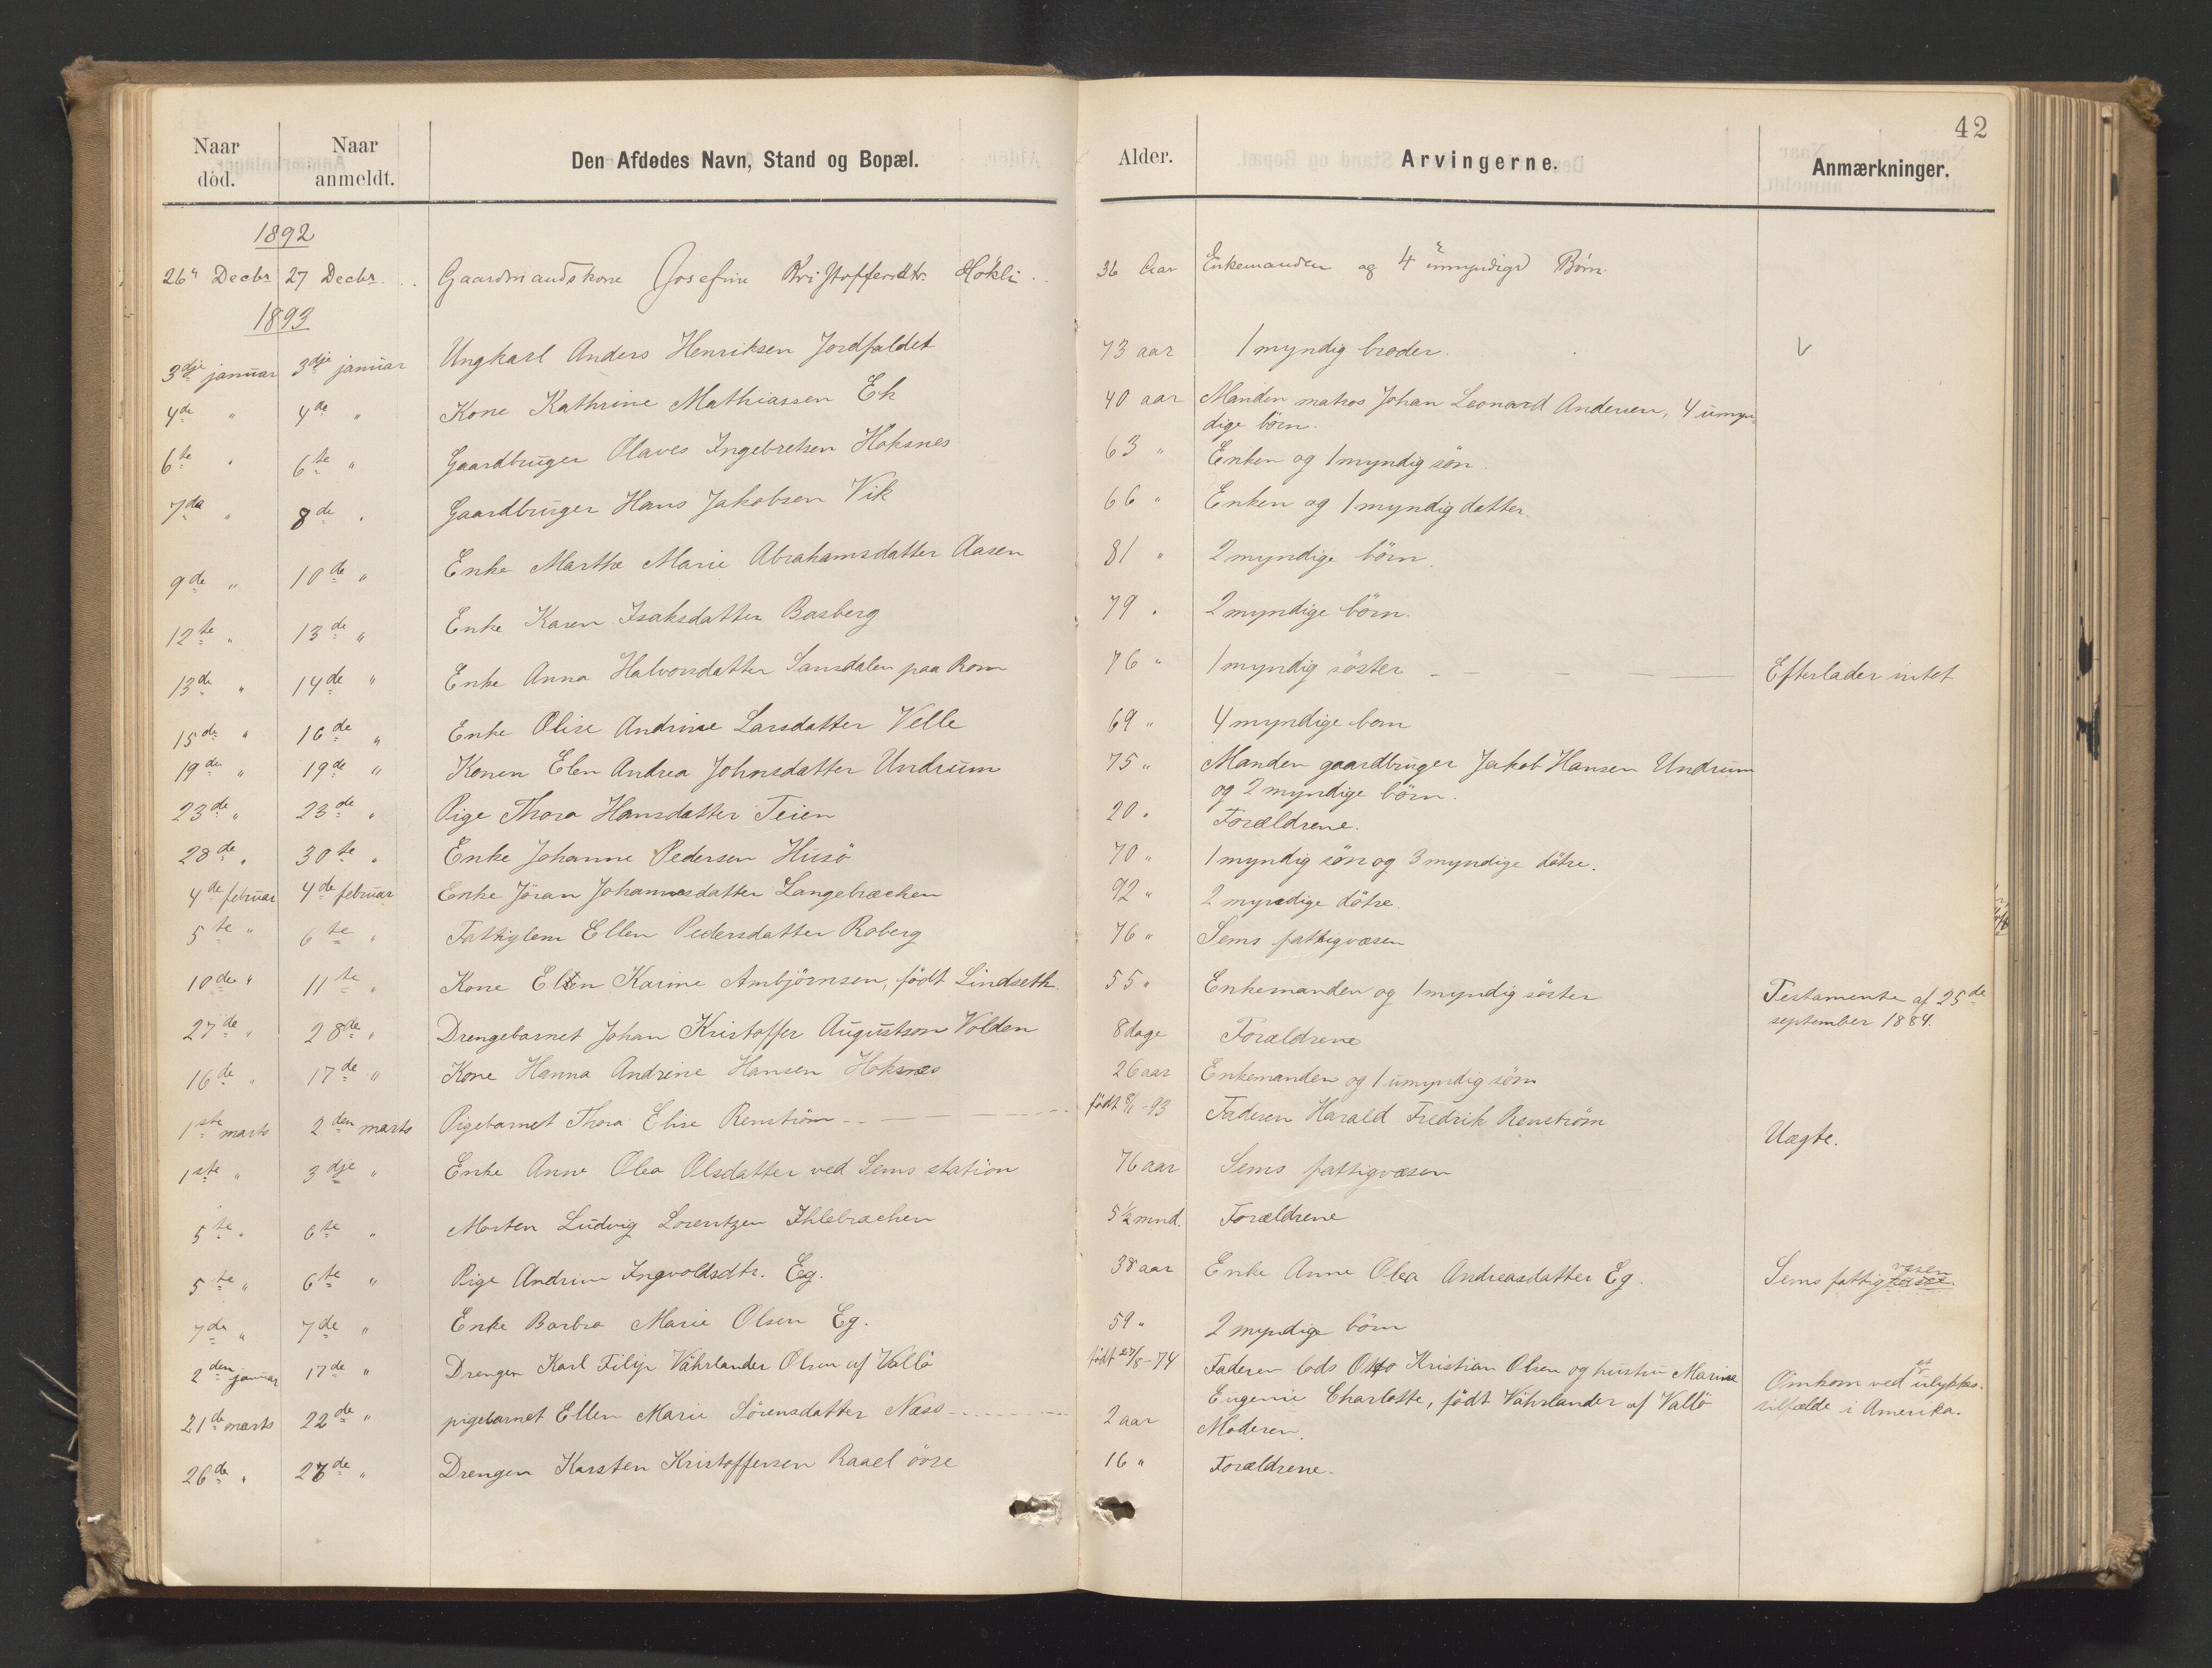 42
Naar død. Naar anmeldt. Den Afdødes Navn, Stand og Bopæl. Alder. Arvingerne. Anmærkninger.
1892
26" Decbr 27 Decbr. Gaardmandskone Josefine Kristoffersdtr. Hökli. 36 Aar Enkemanden og 4 umyndige Børn.
1893
3dje januar 3dje januar Ungkarl Anders Henriksen Jordfaldet 73 aar 1 myndig broder. V
4de " 4de " Kone Kathrine Mathiassen Ek 40 aar Manden matros Johan Leonard Andersen, 4 umyn-
dige børn.
6te " 6te " Gaardbruger Olaves Ingebretsen Hoksnes 63 " Enken og 1 myndig søn.
7de " 8de " Gaardbruger Hans Jakobsen Vik 66 " Enken og 1 myndig datter.
9de " 10de " Enke Marthe Marie Abrahamsdatter Aasen 81 " 2 myndige börn.
12te " 13de " Enke Karen Isaksdatter Basberg 79 " 2 myndige börn.
13de " 14de " Enke Anna Halvorsdatter Sansdalen paa Rom 76 " 1 myndig söster Efterlader intet
15de " 16de " Enke Olise Andrine Larsdatter Velle 69 " 4 myndige born
19de " 19de " Konen Elen Andrea Johnsdatter Undrum 75 " Manden gaardbruger Jakob Hansen Undrum
og 2 myndige börn.
23de " 23de " Pige Thora Hansdatter Teien 20 " Forældrene.
28de " 30te " Enke Johanne Pedersen Husö 70 " 1 myndig sön og 3 myndige dötre.
4de februar 4de februar Enke Jöran Johannesdatter Langebrækken 92 " 2 myndige dötre.
5te " 6te " Fattiglem Ellen Pedersdatter Roberg 76 " Sems fattigvæsen
10de " 11te " Kone Elen Karine Ambjörnsen, födt Lindseth. 55 " Enkemanden og 1 myndig söster Testamente af 25de
september 1884.
27de " 28de " Drengebarnet Johan Kristoffer Augustson Volden 8 dage Forældrene
16de " 17de " Kone Hanna Andrine Hansen Hoksnes 26 aar Enkemanden og 1 umyndig sön
1ste marts 2den marts Pigebarnet Thora Elise Renström födt 8/1-93 Faderen Harald Fredrik Renström Uægte.
1ste " 3dje " Enke Anne Olea Olsdatter ved Sems station 76 aar Sems fattigvæsen
5te " 6te " Morten Ludvig Lorentzen Ihlebrækken 5 1/2 mnd. Forældrene
5te " 6te " Pige Andrine Ingvoldsdtr. Eg. 38 aar Enke Anne Olea Andreasdatter Eg. Sems fattigvæsen
7de " 7de " Enke Barbra Marie Olsen Eg. 59 " 2 myndige börn
2den januar 17de " Drengen Karl Filip Vährlander Olsen af Vallö födt 27/8-74 Faderen lods Otto Kristian Olsen og hustru Marine
Eugenie Charlotte, födt Vährlander af Vallö Omkom ved et ulykkes-
tilfælde i Amerika.
21de marts 22de " pigebarnet Ellen Marie Sörensdatter Næss 2 aar Moderen.
26de " 28de " Drengen Karsten Kristoffersen Raael övre 16 " Forældrene.